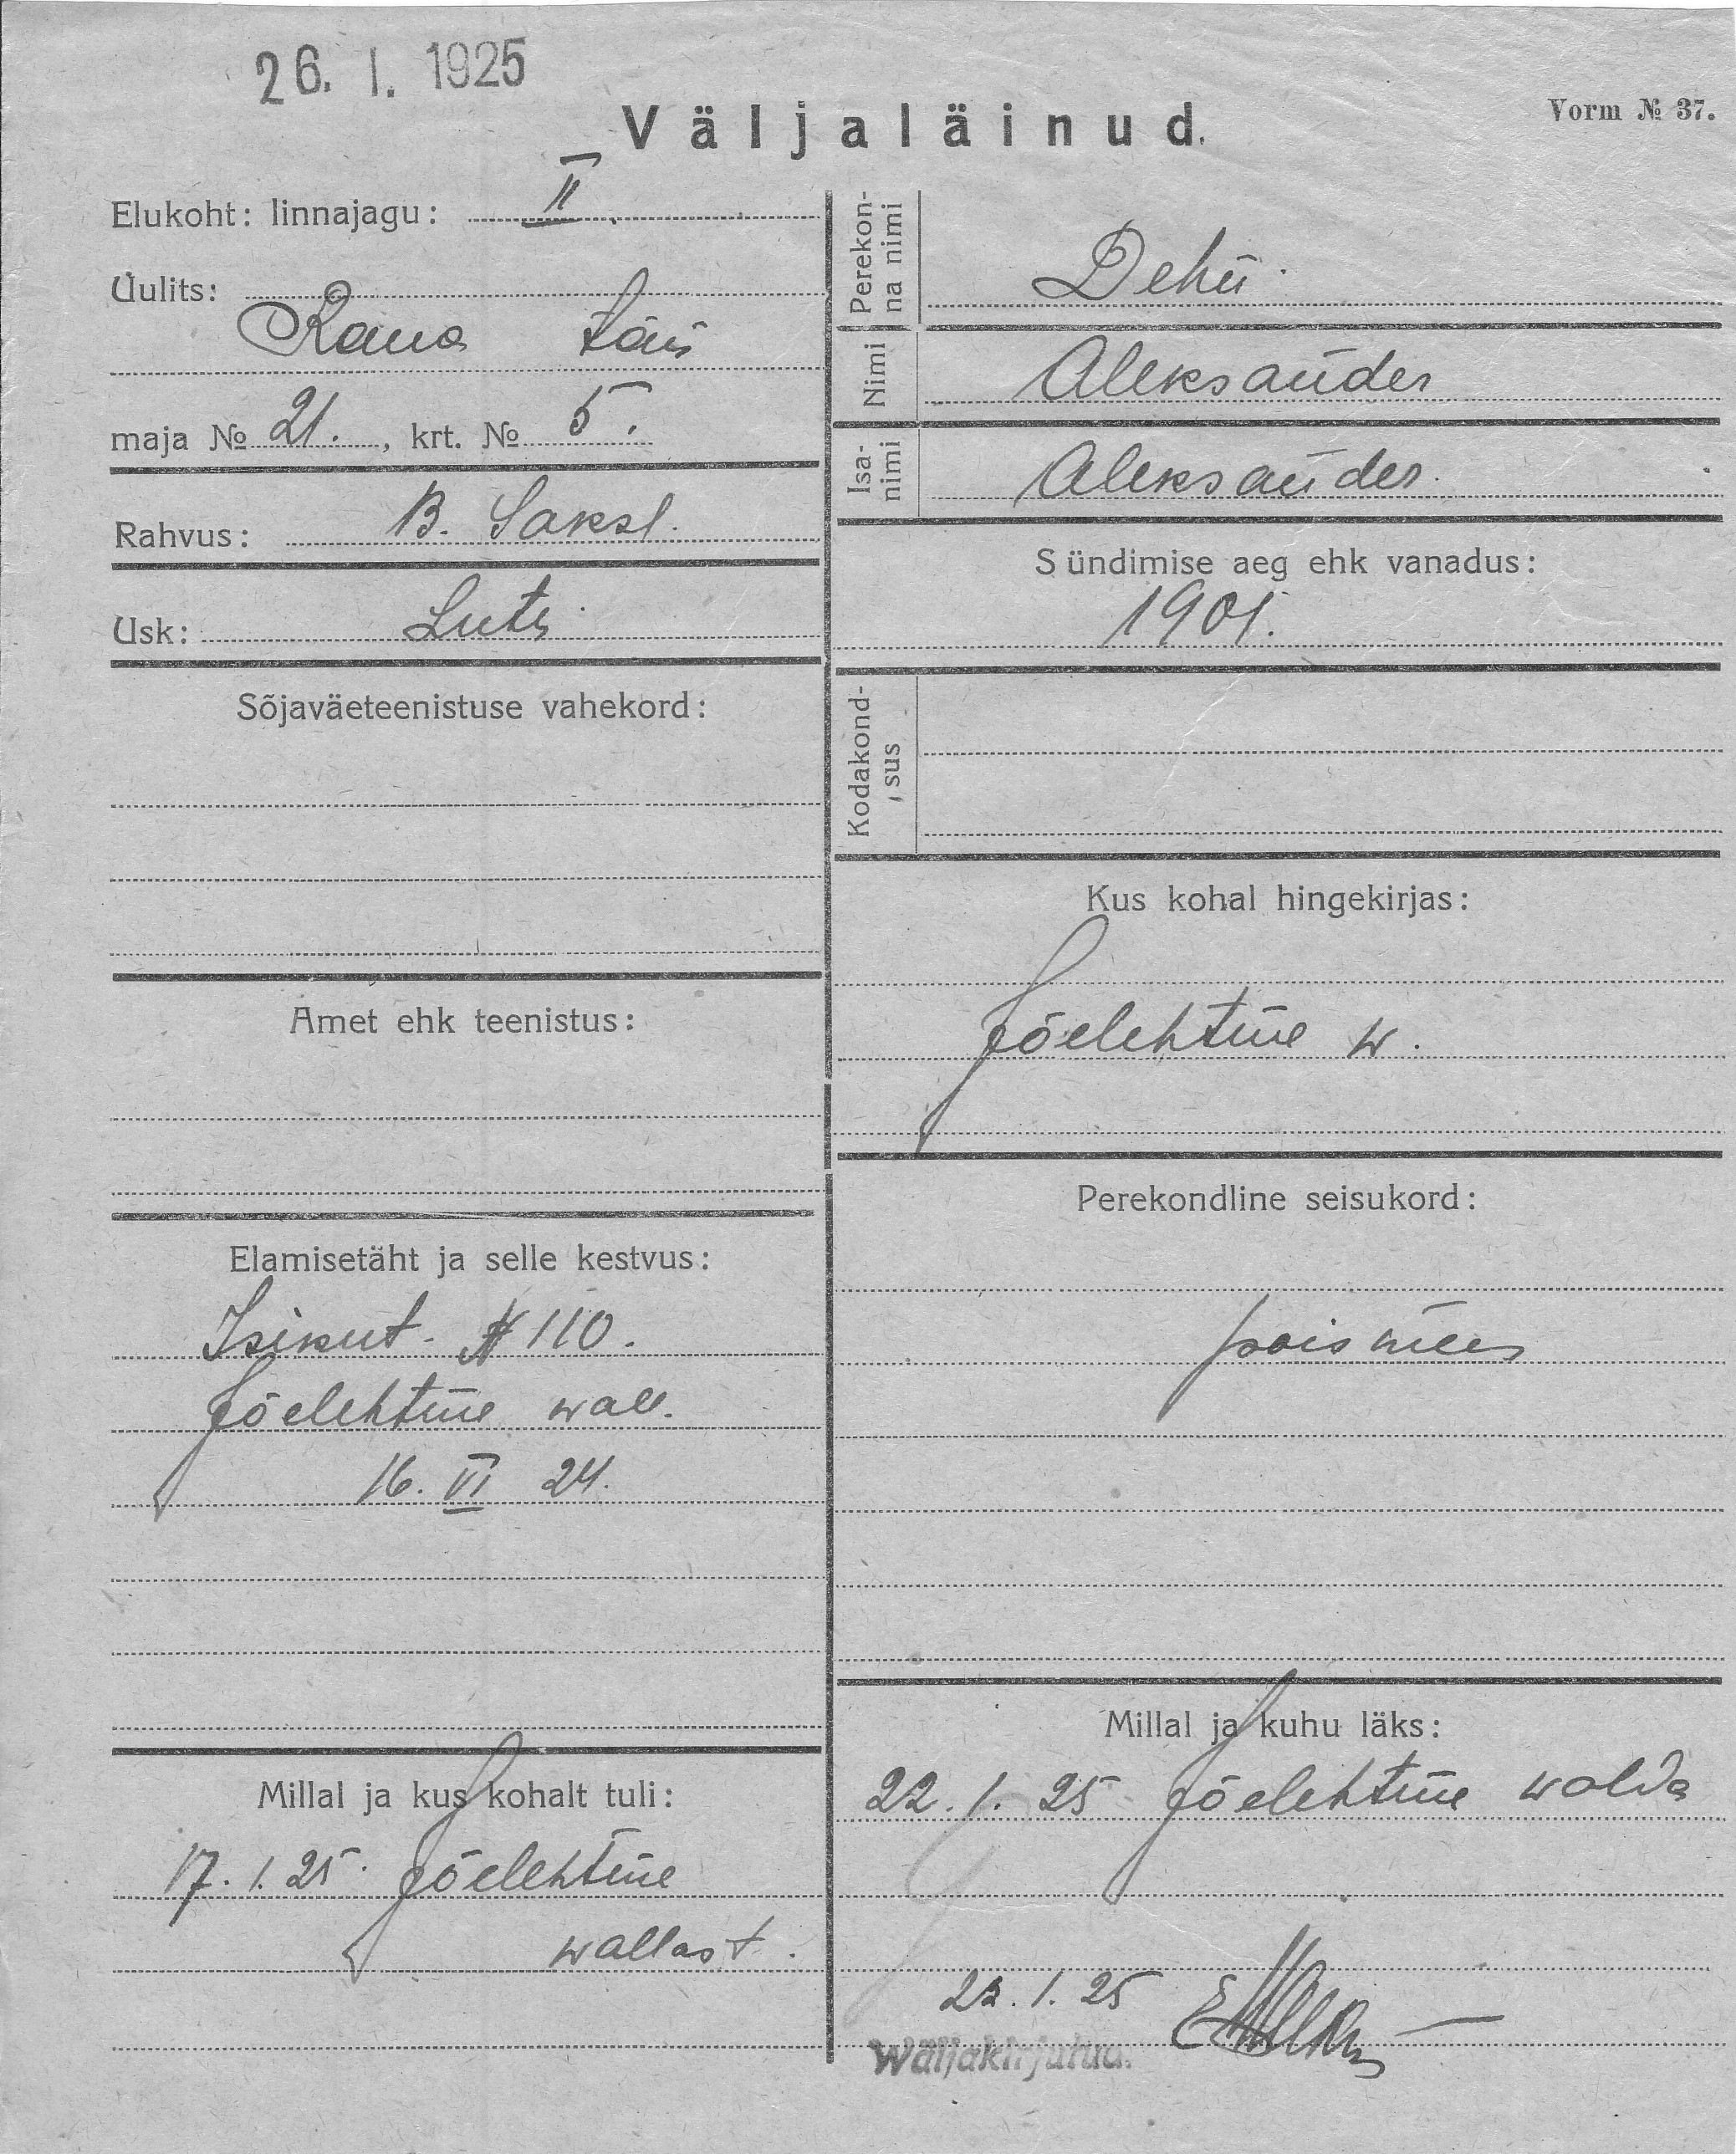 26. I. 1925
Väljaläinud.
Vorm № 37.
Elukoht: linnajagu: II
Uulits:
Raua tän
maja № 21., krt. № 5.
Rahvus: B. Saksl.
Usk: Luts
Sõjaväeteenistuse vahekord:
Amet ehk teenistus:
Elamisetäht ja selle kestvus:
Isikut. № 110.
Jõelehtme wall.
16. VI 24.
Millal ja kus kohalt tuli:
17. 1. 25. Jõelehtme
wallast.
Perekon-
na nimi
Dehn
Nimi
Aleksander
Isa-
nimi
Aleksander.
Sündimise aeg ehk vanadus:
1901.
Kodakond-
sus
Kus kohal hingekirjas:
Jõelehtme w.
Perekondline seisukord:
poismees
Millal ja kuhu läks:
22. 1. 25 Jõelehtme walda
23. 1. 25
Wäljakirjutud.